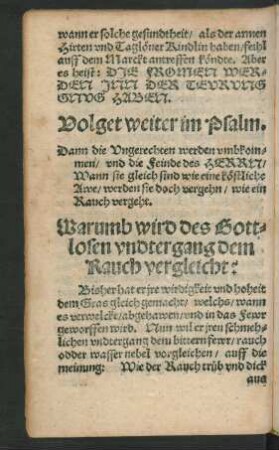 wann er solche gesundtheit/ als der armen
Hirten vnd Taglöner Kindlin haben/ feihl
auff dem Marckt antreffen köndte. Aber
es heißt: DIE FROMEN WER-
DEN INN DER TEVRVNG
GNVG HABEN.
Volget weiter im Psalm.
Dann die Vngerechten werden vmbkom-
men/ vnd die Feinde des HERRN/
Wann sie gleich sind wie eine köstliche
Awe/ werden sie doch vergehn/ wie ein
Rauch vergeht.
Warumb wird des Gott-
losen vndtergang dem
Rauch vergleicht?
Bisher hat er jre wirdigkeit vnd hoheit
dem Gras gleich gemacht/ welchs/ wann
es verwelckt/ abgehawen/ vnd in das Fewr
geworffen wird. Nun wil er jren schmeh-
lichen vndtergang dem bittern fewr/ rauch
odder wasser nebel vorgleichen/ auff die
meinung: Wie der Rauch trüb vnd dick
aug